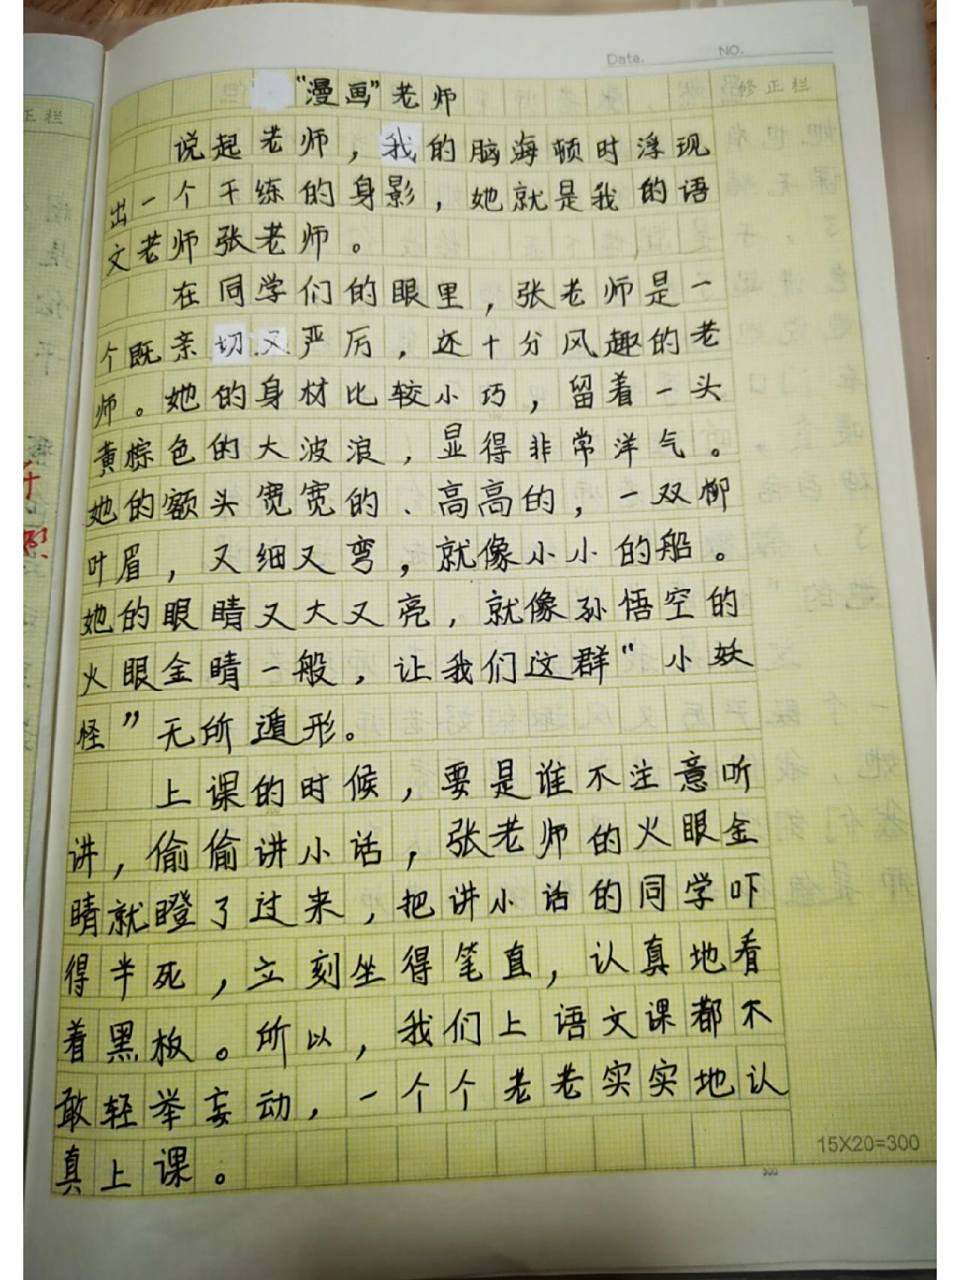 Date.  NO.
正栏  修正栏
“漫画”老师
说起老师，我的脑海顿时浮现
出一个干练的身影，她就是我的语
文老师张老师。
在同学们的眼里，张老师是一
个既亲切又严厉，还十分风趣的老
师。她的身材比较小巧，留着一头
黄棕色的大波浪，显得非常洋气。
她的额头宽宽的、高高的，一双柳
叶眉，又细又弯，就像小小的船。
她的眼睛又大又亮，就像孙悟空的
火眼金睛一般，让我们这群“小妖
怪”无所遁形。
上课的时候，要是谁不注意听
讲，偷偷讲小话，张老师的火眼金
睛就瞪了过来，把讲小话的同学吓
得半死，立刻坐得笔直，认真地看
着黑板。所以，我们上语文课都不
敢轻举妄动，一个个老老实实地认
真上课。
15X20=300
300